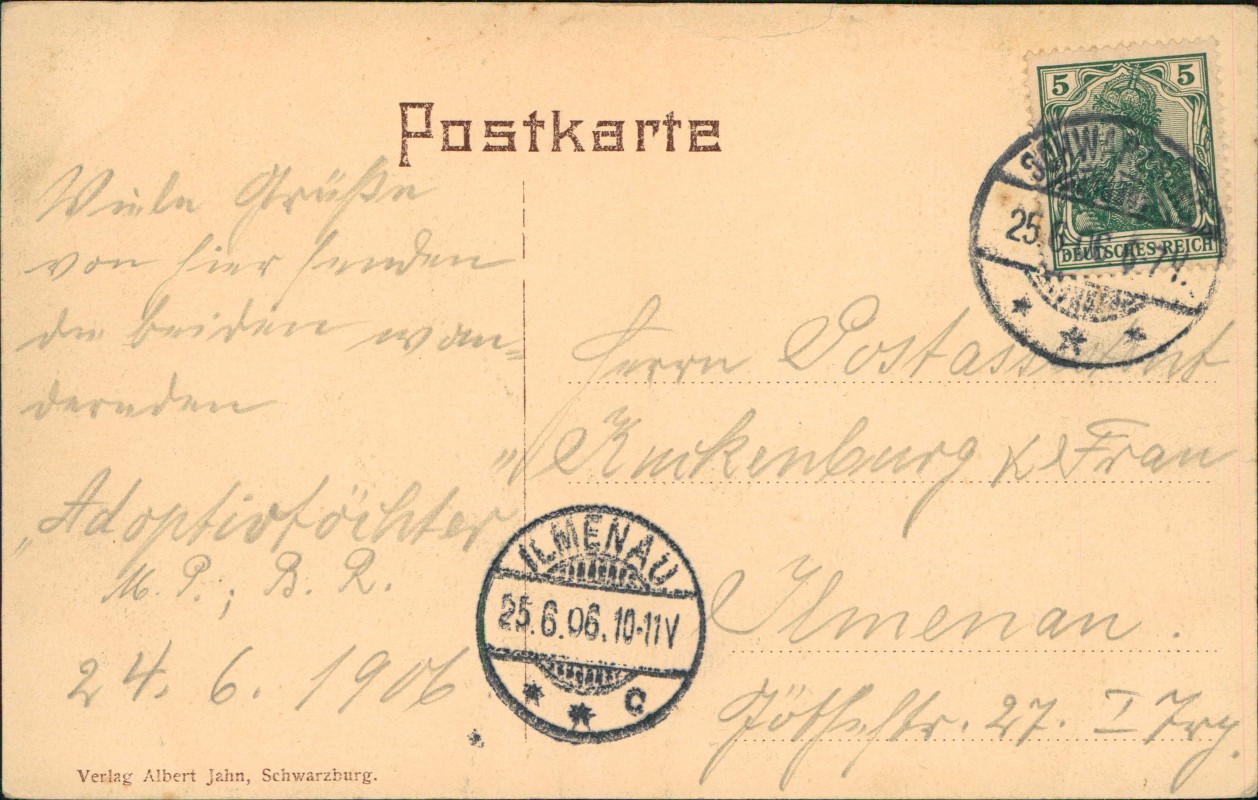 Postkarte
5 5
DEUTSCHES REICH
25.6.06.
Viele Grüße
von hier senden
die beiden wan-
dernden
„Adoptivtöchter"
M. P.; B. R.
24. 6. 1906
Herrn Postassistent
Kuckenburg & Frau
Ilmenau.
27. I
ILMENAU
25.6.06.10-11V
* * c
Verlag Albert Jahn, Schwarzburg.